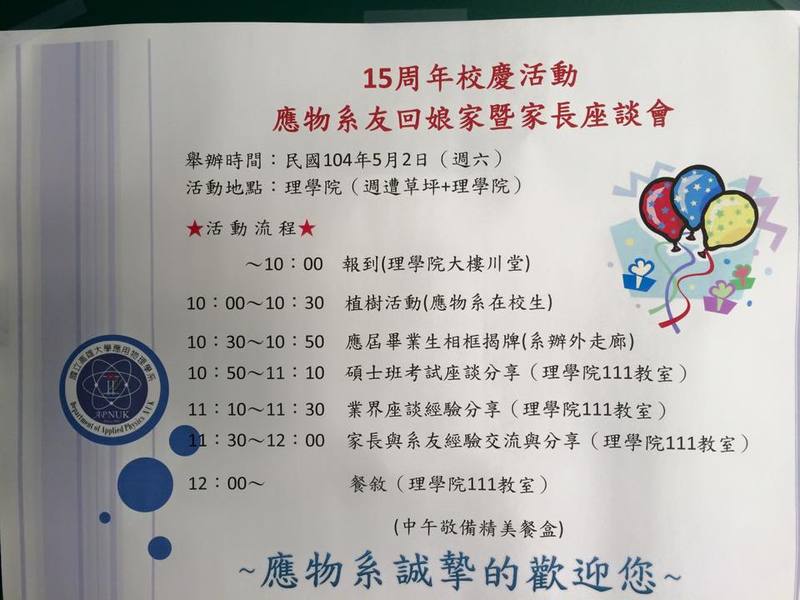 15周年校慶活動
應物系友回娘家暨家長座談會
舉辦時間：民國104年5月2日（週六）
活動地點：理學院（週遭草坪+理學院）
★活動流程★
～10：00 報到(理學院大樓川堂)
10：00～10：30 植樹活動(應物系在校生)
10：30～10：50 應屆畢業生相框揭牌(系辦外走廊)
10：50～11：10 碩士班考試座談分享（理學院111教室）
11：10～11：30 業界座談經驗分享（理學院111教室）
11：30～12：00 家長與系友經驗交流與分享（理學院111教室）
12：00～ 餐敘（理學院111教室）
(中午敬備精美餐盒)
~應物系誠摯的歡迎您~
國立高雄大學應用物理學系
APNUK
Department of Applied Physics NUK